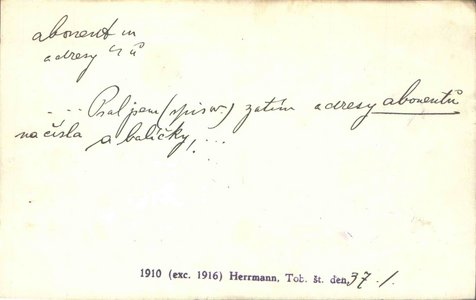 abonent m
adresy ů
... Psal jsem (spisov.) zatím adresy abonentů
na čísla a balíčky, ...
1910 (exc. 1916) Herrmann, Tob. št. den, 37 /.